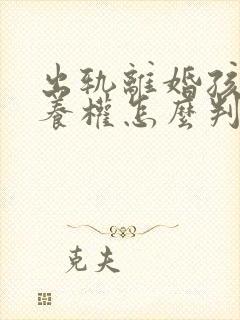 出軌離婚孩
養權怎麼判
克夫